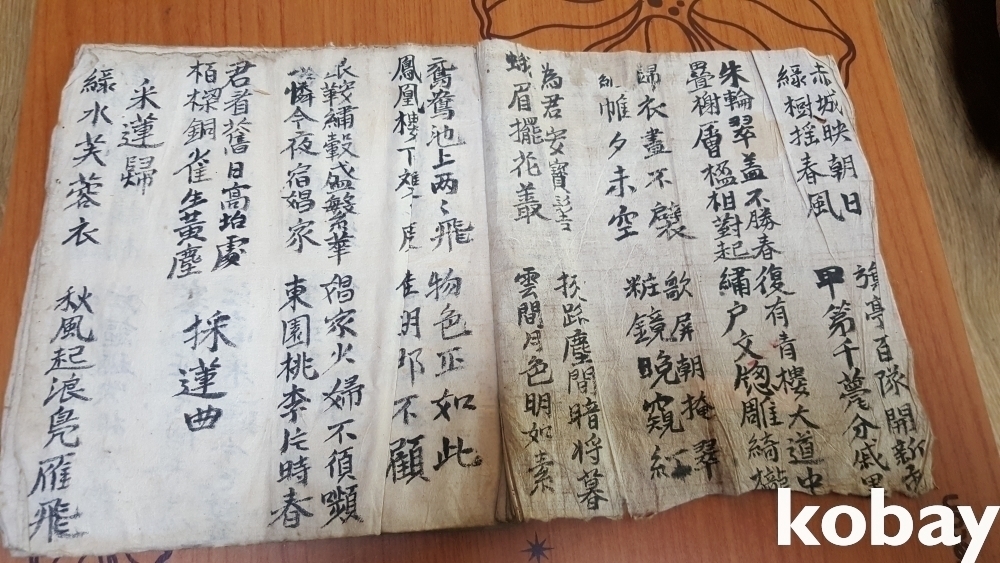 赤城映朝日
綠樹搖春風
亭百隊開新市
甲第千甍分戚里
朱輪翠盖不勝春
疊榭層楹相對起
復有青樓大道中
繡戶文窓雕綺櫳
歸衣盡不襞
帷夕未空
歌屏朝掩翠
粧鏡晚窺紅
為君安寶
蛾眉擺花叢
塵間暗将暮
雲間月色明如素
鴛鴦池上两〻飛
鳳凰樓下雙〻度
物色正如此
佳期那不顧
銀鞍繡轂盛繁華
憐今夜宿娼家
娼家少婦不須嚬
東園桃李片時春
君看舊日高坮處
栢樑銅雀生黃塵
採蓮曲
采蓮歸
綠水芙蓉衣
秋風起浪鳧雁飛
kobay